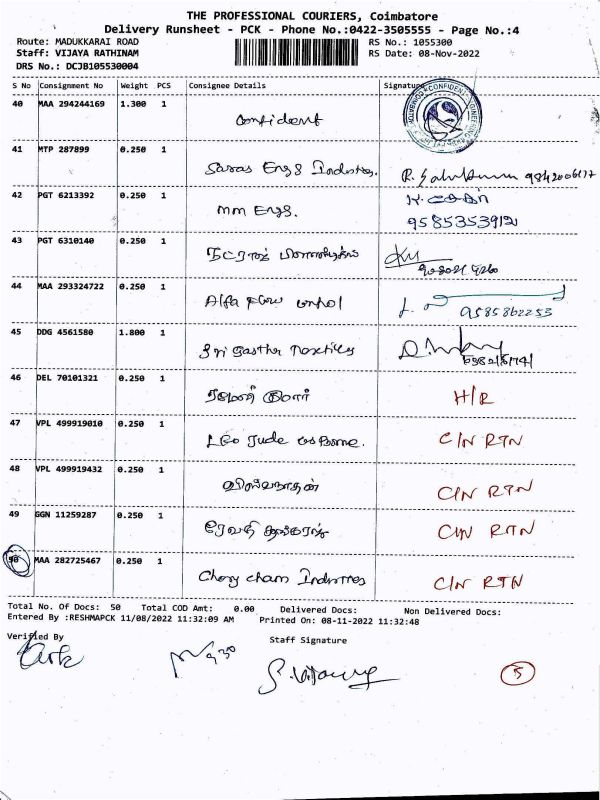 THE PROFESSIONAL COURIERS, Coimbatore
Delivery Runsheet - PCK - Phone No.:0422-3505555 - Page No.:4
Route: MADUKKARAI ROAD RS No.: 1055300
Staff: VIJAYA RATHINAM RS Date: 08-Nov-2022
DRS No.: DCJB105530004
S No Consignment No Weight PCS Consignee Details Signature
40 MAA 294244169 1.300 1 Confident
41 MTP 287899 0.250 1 Saras Engg Industries.
42 PGT 6213392 0.250 1 MM Engg.
9585353912
43 PGT 6310140 0.250 1
44 MAA 293324722 0.250 1 Alfa Flow control
9585862253
45 DDG 4561580 1.800 1 Sri Textiles
46 DEL 70101321 0.250 1 H/R
47 VPL 499919010 0.250 1 Leo Jude C/N RTN
48 VPL 499919432 0.250 1 விஸ்வநாதன் C/N RTN
49 GGN 11259287 0.250 1 ரேவதி C/N RTN
50 MAA 282725467 0.250 1 Industries C/N RTN
Total No. Of Docs: 50 Total COD Amt: 0.00 Delivered Docs: Non Delivered Docs:
Entered By :RESHMAPCK 11/08/2022 11:32:09 AM Printed On: 08-11-2022 11:32:48
Verified By Staff Signature
5